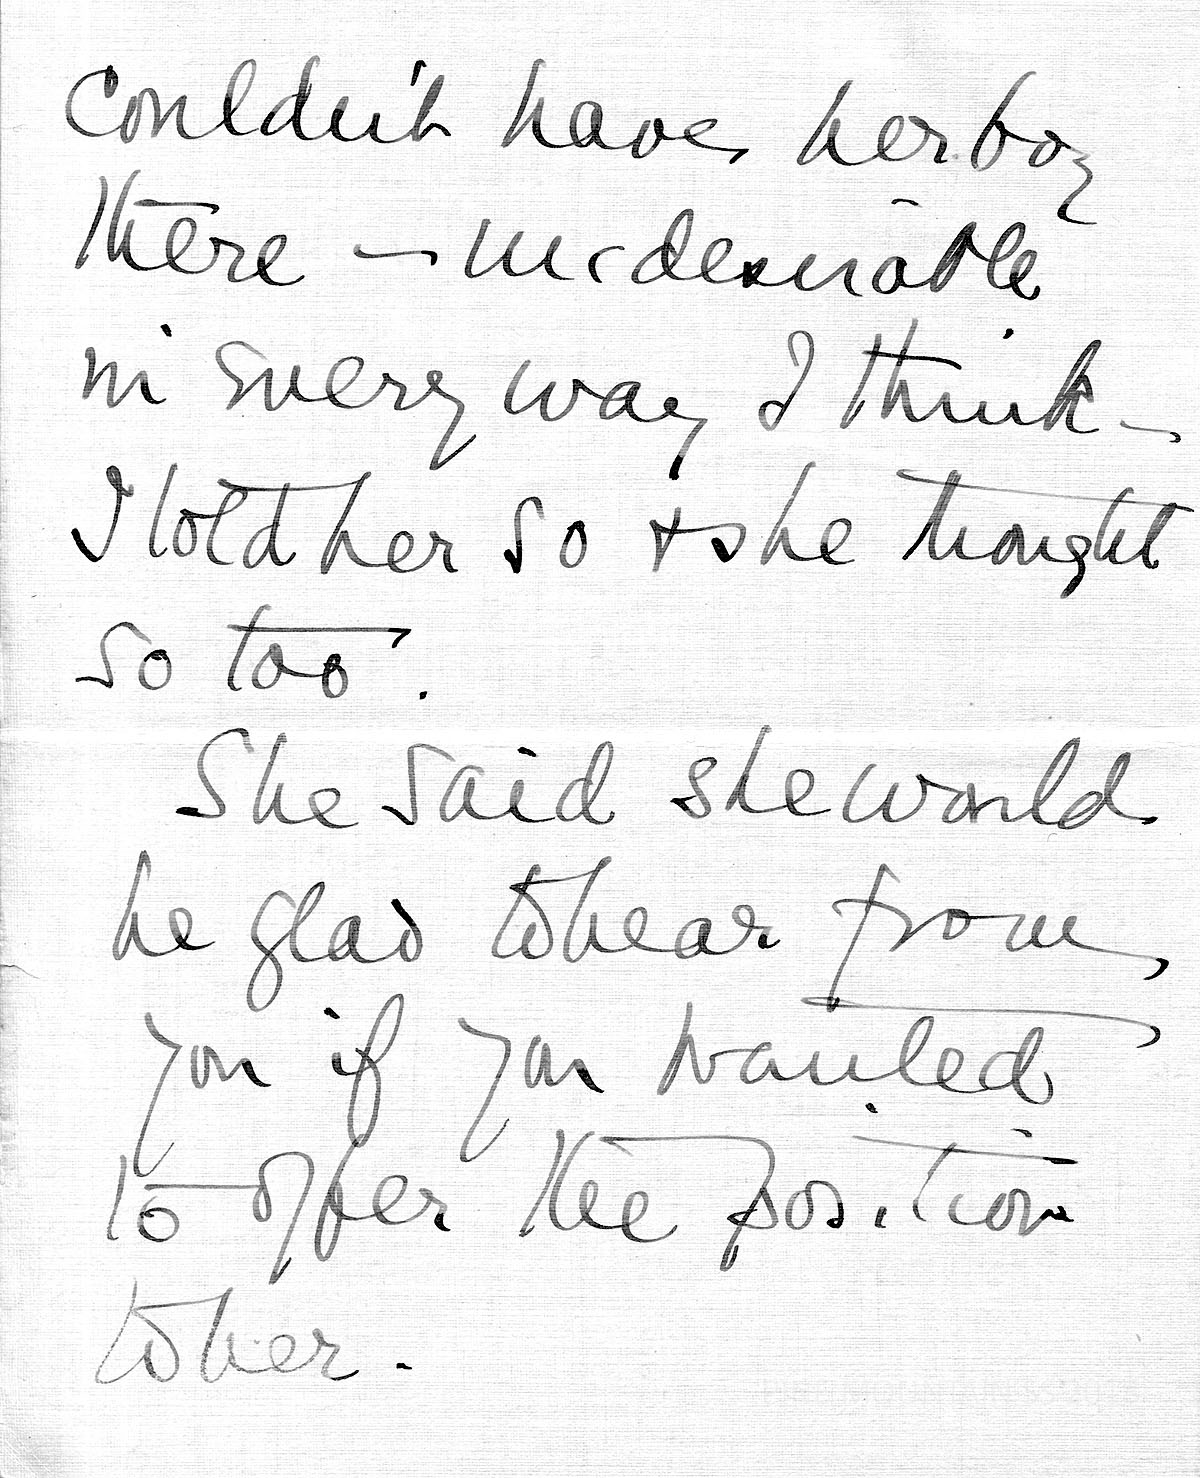 Couldn't have her boy
there — undesirable
in every way I think —
I told her so + she thought
so too.
She said she would
be glad to hear from
you if you wanted
to offer the position
to her.